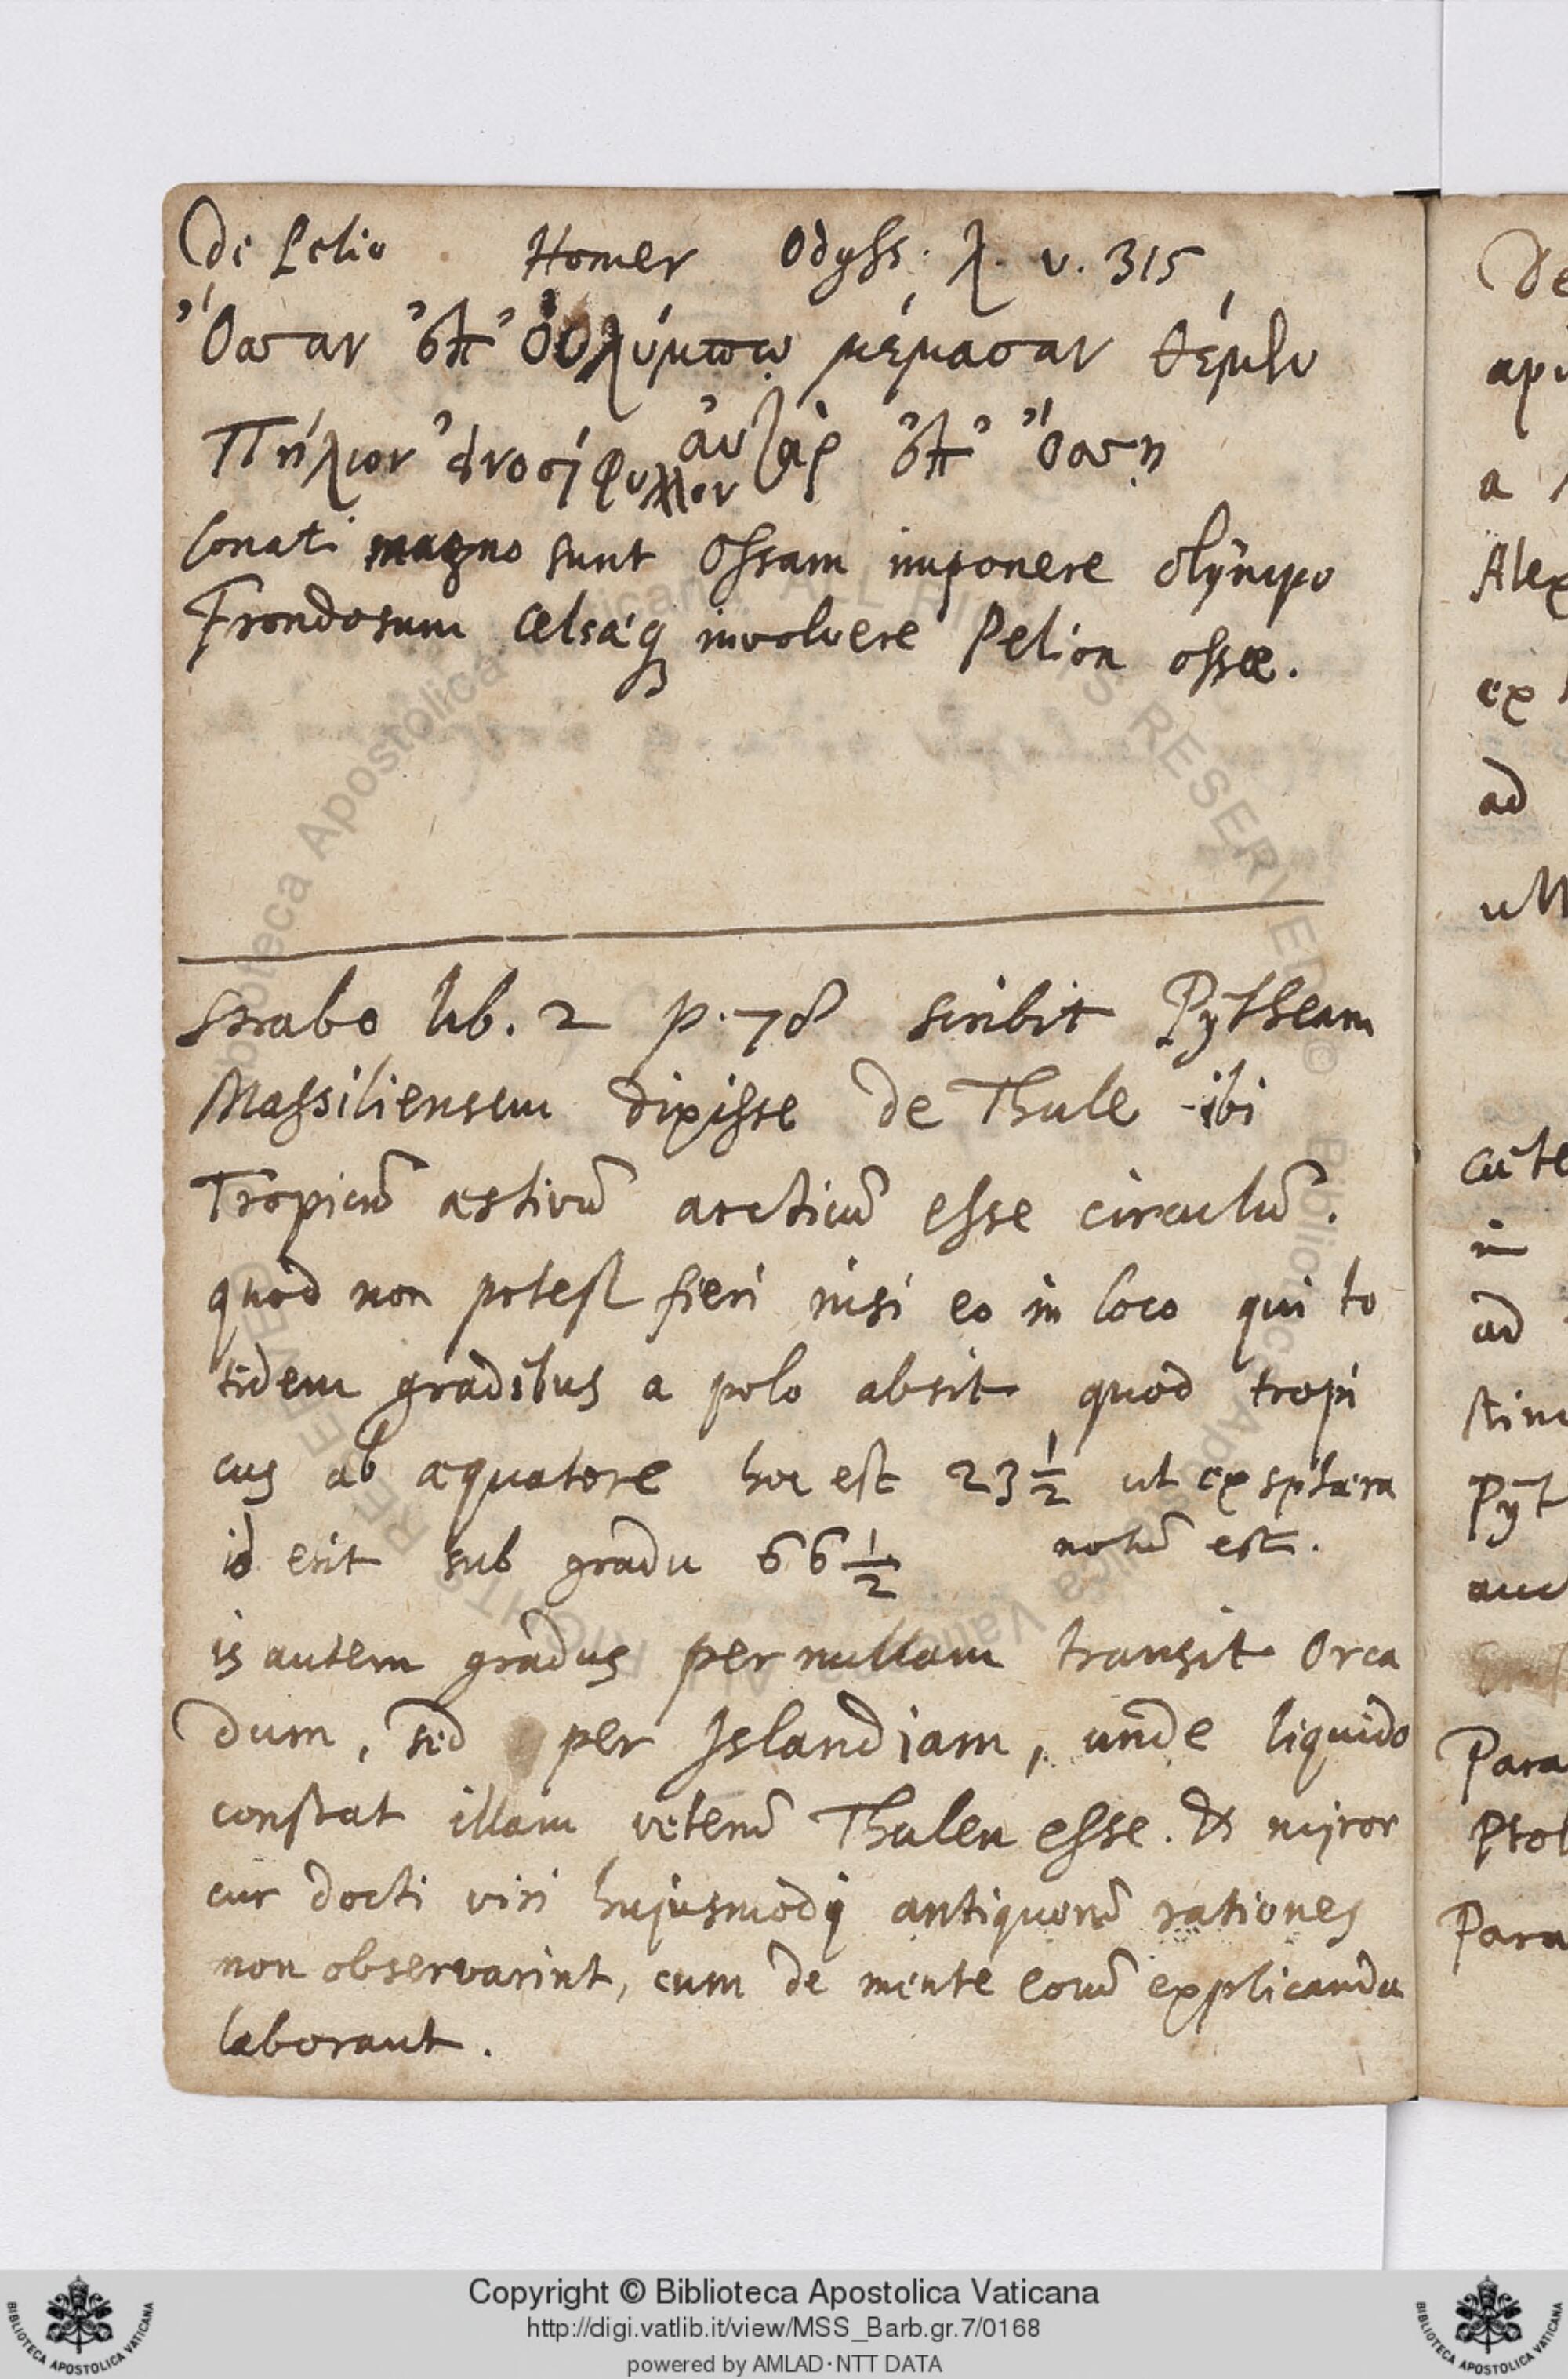 De Pelio . Homer Odyss. λ. v. 315
Ὄσσαν ἐπ' Οὐλύμπῳ μέμασαν θέμεν
Πήλιον εἰνοσίφυλλον αὐτὰρ ἐπ' Ὄσσῃ
Conati magno sunt Ossam imponere Olympo
Frondosum celsáq3 involvere Pelion ossæ.
Strabo lib. 2 p. 78 scribit Pytheam
Massiliensem dixisse de Thule ibi
Tropicū æstivū arcticū esse circulū.
quod non potest fieri nisi eo in loco qui to
tidem gradibus a polo absit quod tropi
cus ab æquatore hoc est 23 1/2 ut ex sphæra
notū est.
id erit sub gradu 66 1/2
is autem gradus per nullam transit Orca
dum, sed per Islandiam, unde liquido
constat illam veterū Thulen esse. & mijror
cur docti viri hujusmodij antiquorū rationes
non observarint, cum de mente eorū explicanda
laborant.
De
a
Alex
ex
ad
in
ad
Para
Ptol
Para
Copyright © Biblioteca Apostolica Vaticana
http://digi.vatlib.it/view/MSS_Barb.gr.7/0168
powered by AMLAD·NTT DATA
BIBLIOTECA APOSTOLICA VATICANA
BIBLIOTECA APOSTOLICA VATICANA